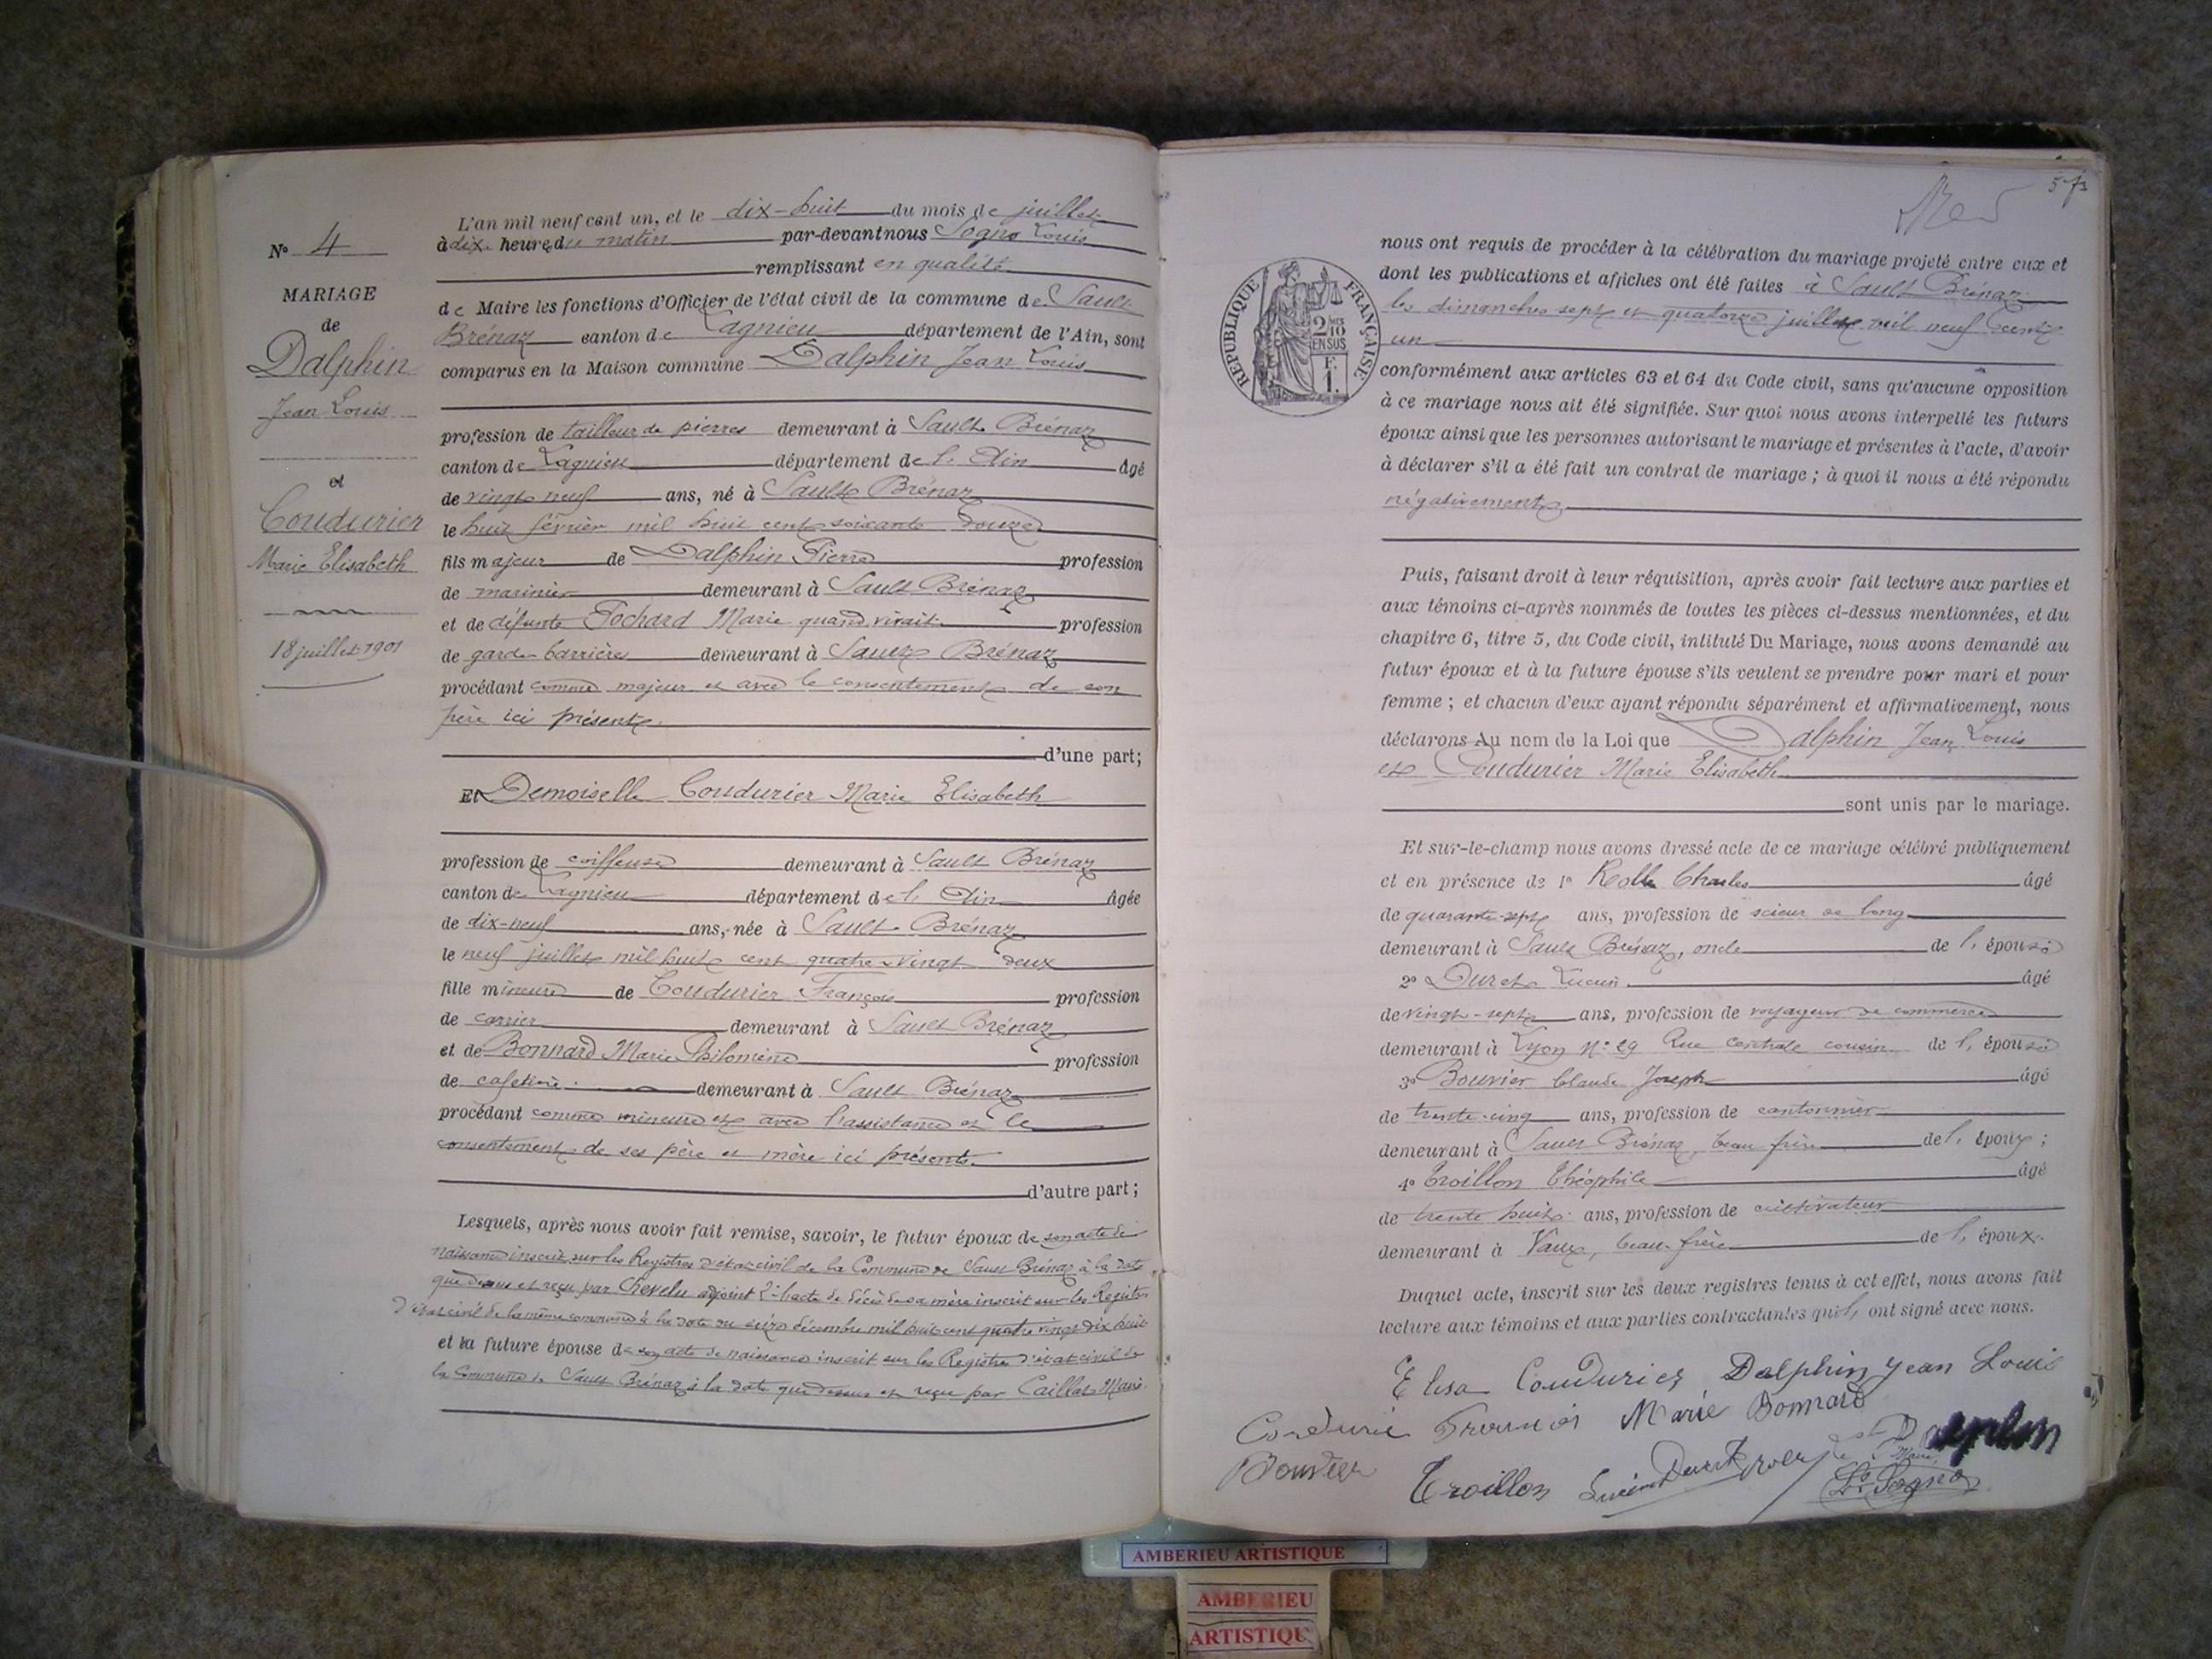 N° 4
MARIAGE
de
Dalphin
Jean Louis
et
Coudurier
Marie Elisabeth
18 juillet 1901
L'an mil neuf cent un, et le dix-huit du mois de juillet
à dix heures du matin par-devant nous Sogno Louis
remplissant en qualité
de Maire les fonctions d'Officier de l'état civil de la commune de Sault
Brénaz canton de Lagnieu département de l'Ain, sont
comparus en la Maison commune Dalphin Jean Louis
profession de tailleur de pierres demeurant à Sault Brénaz
canton de Lagnieu département de l'Ain âgé
de vingt neuf ans, né à Sault Brénaz
le huit février mil huit cent soixante douze
fils majeur de Dalphin Pierre profession
de marinier demeurant à Sault Brénaz
et de défunte Pochard Marie quand vivait profession
de garde-barrière demeurant à Sault Brénaz
procédant comme majeur et avec le consentement de son
père ici présent.
d'une part;
Et Demoiselle Coudurier Marie Elisabeth
profession de coiffeuse demeurant à Sault Brénaz
canton de Lagnieu département de l'Ain âgée
de dix-neuf ans, née à Sault Brénaz
le neuf juillet mil huit cent quatre-vingt deux
fille mineure de Coudurier François profession
de carrier demeurant à Sault Brénaz
et de Bonnard Marie Philomène profession
de cafetière demeurant à Sault Brénaz
procédant comme mineure et avec l'assistance et le
consentement de ses père et mère ici présents.
d'autre part;
Lesquels, après nous avoir fait remise, savoir, le futur époux de son acte de
naissance inscrit sur les Registres d'état civil de la Commune de Sault Brénaz à la date
que dessus et reçu par Chevelu adjoint 2° l'acte de décès de sa mère inscrit sur les Registres
d'état civil de la même commune à la date du seize décembre mil huit cent quatre vingt dix huit
et la future épouse de son acte de naissance inscrit sur les Registres d'état civil de
la Commune de Sault Brénaz à la date que dessus et reçu par Caillat Maire.
57
nous ont requis de procéder à la célébration du mariage projeté entre eux et
dont les publications et affiches ont été faites à Sault Brénaz
les dimanches sept et quatorze juillet mil neuf cent
un
RÉPUBLIQUE FRANÇAISE
2/10 EN SUS
F.
1.
conformément aux articles 63 et 64 du Code civil, sans qu'aucune opposition
à ce mariage nous ait été signifiée. Sur quoi nous avons interpellé les futurs
époux ainsi que les personnes autorisant le mariage et présentes à l'acte, d'avoir
à déclarer s'il a été fait un contrat de mariage; à quoi il nous a été répondu
négativement
Puis, faisant droit à leur réquisition, après avoir fait lecture aux parties et
aux témoins ci-après nommés de toutes les pièces ci-dessus mentionnées, et du
chapitre 6, titre 5, du Code civil, intitulé Du Mariage, nous avons demandé au
futur époux et à la future épouse s'ils veulent se prendre pour mari et pour
femme; et chacun d'eux ayant répondu séparément et affirmativement, nous
déclarons Au nom de la Loi que Dalphin Jean Louis
et Coudurier Marie Elisabeth
sont unis par le mariage.
Et sur-le-champ nous avons dressé acte de ce mariage célébré publiquement
et en présence de 1° Charles âgé
de quarante-sept ans, profession de scieur de long
demeurant à Sault Brénaz, oncle de l'épouse
2° Duret Lucien âgé
de vingt-sept ans, profession de voyageur de commerce
demeurant à Lyon N° 29 Rue Centrale cousin de l'épouse
3° Bouvier Claude Joseph âgé
de trente-cinq ans, profession de cantonnier
demeurant à Sault Brénaz, beau frère de l'époux;
4° Troillon Théophile âgé
de trente huit ans, profession de cultivateur
demeurant à Vaux, beau-frère de l'époux.
Duquel acte, inscrit sur les deux registres tenus à cet effet, nous avons fait
lecture aux témoins et aux parties contractantes qui ont signé avec nous.
Elisa Coudurier Dalphin Jean Louis
Coudurié François Marie Bonnard
Bouvier Troillon Lucien Duret
Le Maire,
Ls Sogno
AMBERIEU ARTISTIQUE
AMBERIEU
ARTISTIQUE